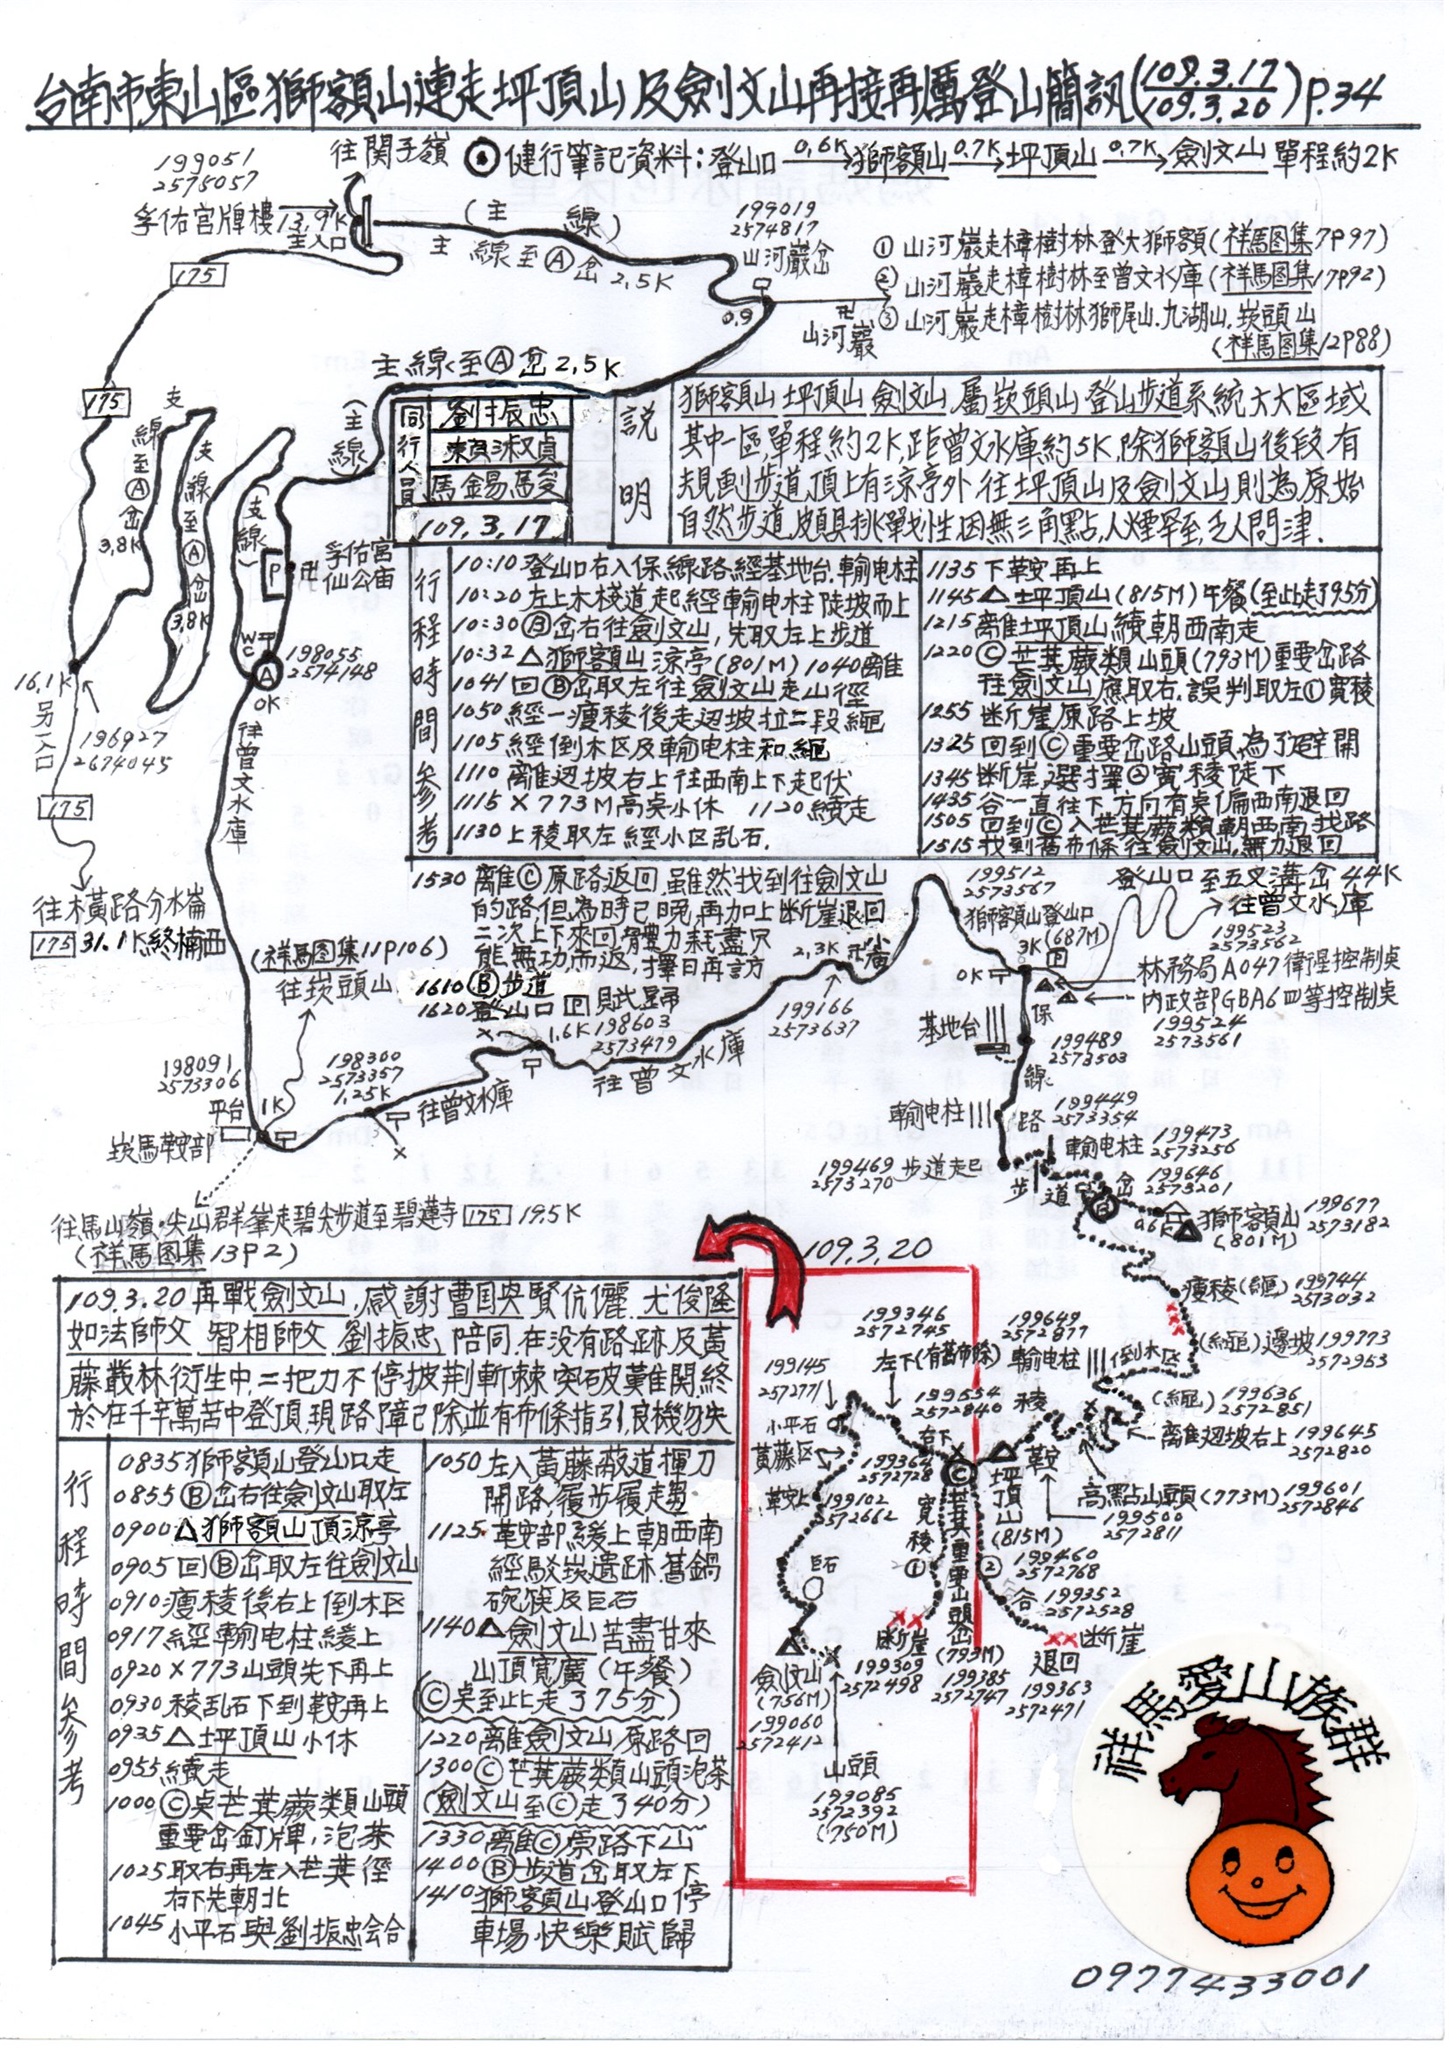 台南市東山區獅額山連走坪頂山及劍文山再接再厲登山簡訊(109.3.17
109.3.20)P.34
199051
2575057
往関子嶺
健行筆記資料:登山口 0.6K 獅額山 0.7K 坪頂山 0.7K 劍文山 單程約2K
孚佑宮牌樓 13.9K
主入口
(主線)
主線至Ⓐ岔 2.5K
199019
2574817
山河巖岔
0.9
卍
山河巖
① 山河巖走樟樹林登大獅額(祥馬图集7P97)
② 山河巖走樟樹林至曾文水庫(祥馬图集17P92)
③ 山河巖走樟樹林獅尾山.九湖山.崁頭山
(祥馬图集12P88)
175
175
主線至Ⓐ岔 2.5K
(主線)
支線至Ⓐ岔 3.8K
支線至Ⓐ岔 3.8K
(支線)
同行人員
劉振忠
馬錫
109.3.17
説明
獅額山 坪頂山 劍文山,屬崁頭山登山步道系統大大區域
其中一區,單程約2K,距曾文水庫約5K,除獅額山後段有
規劃步道,頂上有涼亭外,往坪頂山及劍文山則為原始
自然步道,頗具挑戰性,因無三角點,人煙罕至,乏人問津.
P
卍
孚佑宮
仙公庙
WC
Ⓐ
0K
198055
2574148
16.1K
另入口
196927
2674045
175
往曾文水庫
往橫路分水崙
175 31.1K終楠西
行程時間參考
10:10 登山口右入保線路經基地台.輸电柱
10:20 左上木棧道起經輸电柱陡坡而上
10:30 Ⓑ岔右往劍文山,先取左上步道
10:32 △獅額山涼亭(801M) 1040離
1041 回Ⓑ岔取左往劍文山走山徑
1050 經一瘦稜後走边坡拉二段繩
1105 經倒木区及輸电柱和繩
1110 離边坡右上往西南上下起伏
1115 X773M高点小休 1120續走
1130 上稜取左經小区乱石.
1135 下鞍再上
1145 △坪頂山(815M)午餐(至此走了95分)
1215 離坪頂山續朝西南走
1220 Ⓒ芒萁蕨類山頭(793M)重要岔路
往劍文山應取右.誤判取左①寬稜
1255 断崖原路上坡
1325 回到Ⓒ重要岔路山頭,為了避開
1345 断崖,選擇②寬稜陡下
1435 谷一直往下方向有点偏西南退回
1505 回到Ⓒ入芒萁蕨類朝西南找路
1515 找到舊布條往劍文山,無力退回
1530 離Ⓒ原路返回,雖然找到往劍文山
的路,但為時已晚,再加上断崖退回
二次上下來回體力耗盡,只
能無功而返,擇日再訪
1610 Ⓑ步道
1620 登山口 回 賦歸
(祥馬图集11P106)
往崁頭山
198091
2573306
平台
1K
崁馬鞍部
198300
2573357
1.25K
往曾文水庫
1.6K
198603
2573479
往曾文水庫
2.3K
199166
2573637
往馬山嶺.尖山群峯走碧尖步道至碧蓮寺 175 19.5K
(祥馬图集13P2)
199512
2573567
獅額山登山口
(687M)
3K
0K
P
登山口至五叉溝岔 4.4K
往曾文水庫
199523
2573562
林務局A047衛星控制点
內政部GBA6四等控制点
199524
2573561
基地台
保線路
199489
2573503
輸电柱
199449
2573354
199469
2573270
步道起
步道
輸电柱 199473
2573256
岔 199646
2573201
Ⓑ
0.6K
獅額山
(801M)
199677
2573182
瘦稜(繩) 199744
2573032
(繩)邊坡 199773
2572953
(繩) 199636
2572851
離边坡右上 199645
2572820
高點山頭(773M) 199601
2572846
199500
2572811
鞍
稜
199649
2572877
輸电柱
倒木区
109.3.20
199346
2572745
左下(有舊布條)
199145
2572771
小平石
199554
2572840
右下
黃藤区
199364
2572728
鞍上 199102
2572662
巨石
Ⓒ
坪頂山
(815M)
芒萁重要山頭岔
(793M)
199385
2572747
寬稜①
②
199460
2572768
谷 199352
2572528
断崖
199309
2572498
断崖
退回
199363
2572471
劍文山
(756M)
199060
2572412
山頭
199085
2572392
(750M)
109.3.20 再戰劍文山,感謝曹国與賢伉儷 尤俊隆
如法師父 智相師父 劉振忠 陪同,在没有路跡及黃
藤叢林衍生中,二把刀不停披荊斬棘突破難関,終
於在千辛萬苦中登頂,現路障已除並有布條指引,良機勿失
行程時間參考
0835 獅額山登山口走
0855 Ⓑ岔右往劍文山取左
0900 △獅額山頂涼亭
0905 回Ⓑ岔取左往劍文山
0910 瘦稜後右上倒木区
0917 經輸电柱緩上
0920 X773山頭先下再上
0930 稜乱石下到鞍再上
0935 △坪頂山小休
0955 續走
1000 Ⓒ点芒萁蕨類山頭
重要岔釘牌,泡茶
1025 取右再左入芒萁徑
右下先朝北
1045 小平石與劉振忠会合
1050 左入黃藤蔽道揮刀
開路,履步履趨
1125 鞍部緩上朝西南
經駁崁遺跡.舊鍋
碗筷及巨石
1140 △劍文山苦盡甘來
山頂寬廣(午餐)
(Ⓒ点至此走了75分)
1220 離劍文山原路回
1300 Ⓒ芒萁蕨類山頭泡茶
(劍文山至Ⓒ走了40分)
1330 離Ⓒ原路下山
1400 Ⓑ步道岔取左下
1410 獅額山登山口停
車場快樂賦歸
祥馬愛山族群
0977433001